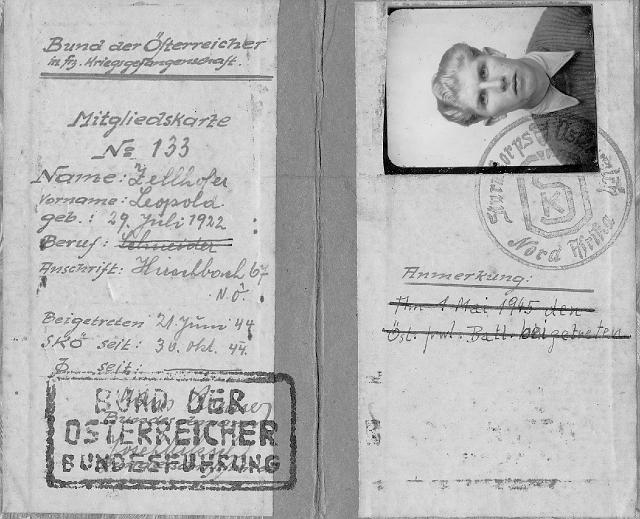 Bund der Österreicher
in frz. Kriegsgefangenschaft.
Mitgliedskarte
No 133
Name: Zellhofer
Vorname: Leopold
geb.: 29. Juli 1922
Beruf: Schneider
Anschrift: Hirschbach 67
N.Ö.
Beigetreten 21. Juni 44
SKÖ seit: 30. Okt. 44.
seit:
BUND DER
ÖSTERREICHER
BUNDESFÜHRUNG
Nord Afrika
Anmerkung:
Am 1 Mai 1945 den
Öst. frw. Batl. beigetreten